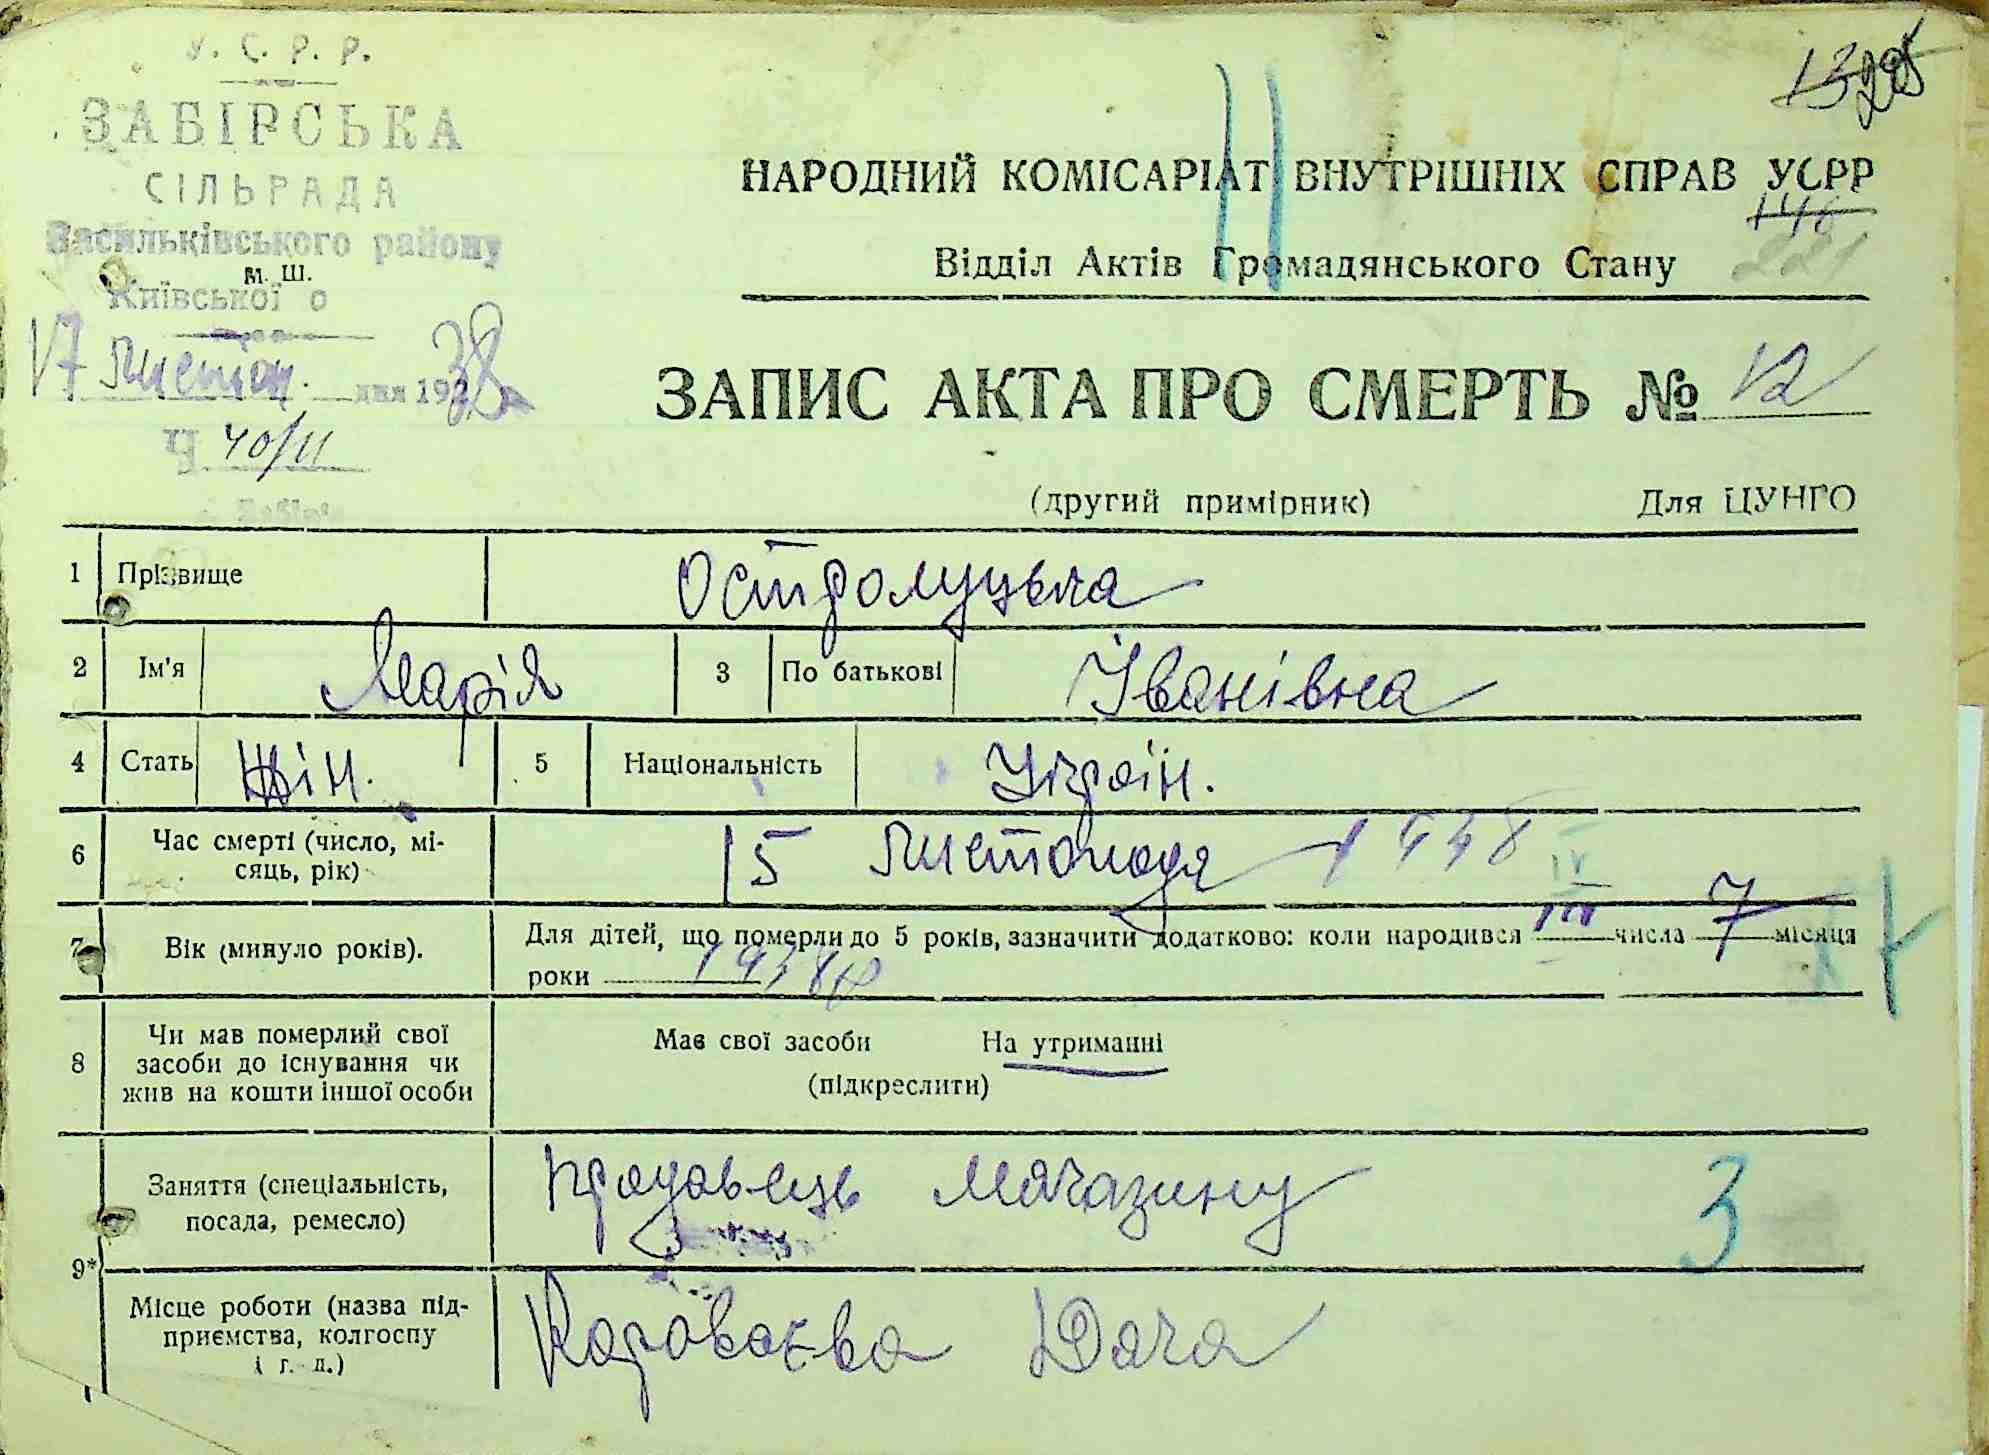 У. С. Р. Р.
ЗАБІРСЬКА
СІЛЬРАДА
Васильківського району
м. ш.
Київської о
17 листоп. дня 1938
Ч 40/11
225
НАРОДНИЙ КОМІСАРІАТ ВНУТРІШНІХ СПРАВ УСРР
146
221
Відділ Актів Громадянського Стану
ЗАПИС АКТА ПРО СМЕРТЬ № 12
(другий примірник) Для ЦУНГО
1 Прізвище Остролуцька
2 Ім'я Марія 3 По батькові Іванівна
4 Стать жін. 5 Національність Україн.
6 Час смерті (число, мі-
сяць, рік) 15 листопада 1938
IV
7 Вік (минуло років). Для дітей, що померли до 5 років, зазначити додатково: коли народився числа 7 місяця
роки 1938
8 Чи мав померлий свої
засоби до існування чи
жив на кошти іншої особи
Має свої засоби На утриманні
(підкреслити)
9* Заняття (спеціальність,
посада, ремесло) продавець магазину 3
Місце роботи (назва під-
приємства, колгоспу
і т. п.) Караваєва Дача